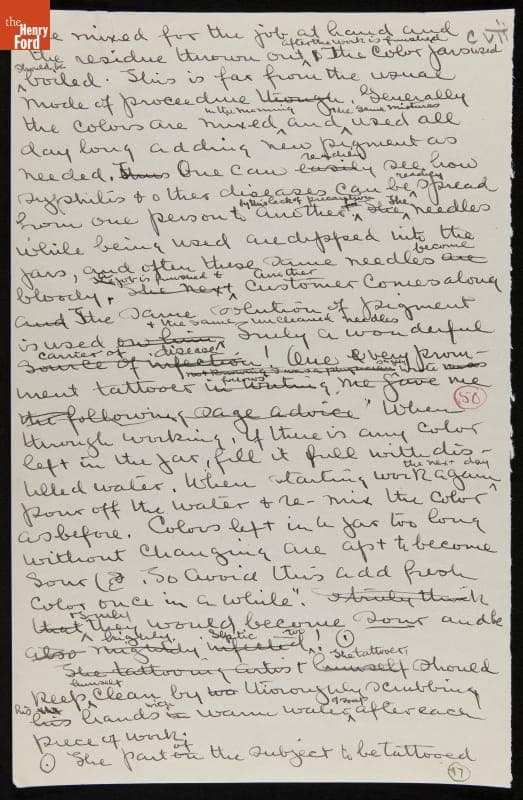 the Henry Ford
be mixed for the job at hand and
C VII
after the work is finished
the residue thrown out & the color jars used
should be
boiled. This is far from the usual
mode of proceedure though. Generally
in the morning the same mixtures
the colors are mixed, and used all
day long adding new pigment as
needed. Thus One can easily see how
readily readily
syphilis & other diseases can be spread
by this lack of precaution
from one person to another. The needles
while being used are dipped into the
become
jars, and often these same needles are
the job is finished & another
bloody & The next customer comes along
and The same solution of pigment
& the same uncleaned needles
is used on him Truly a wonderful
carrier of disease
source of infection! One very prom-
not knowing I was a physician
inent tattooer in writing me gave me
50
the following sage advice "When
through working, if there is any color
left in the jar, fill it full with dis-
the next day
tilled water. When starting work again
pour off the water & re-mix the color
as before. Colors left in a jar too long
without changing are apt to become
sour (?. So avoid this add fresh
color once in a while". I truly think
that they would become sour and be
highly septic too
also mightily infected!
The tattooer
The tattooing artist himself should
himself
keep clean by thoroughly scrubbing
with
his hands in warm water after each
piece of work.
The part on the subject to be tattooed
of
47